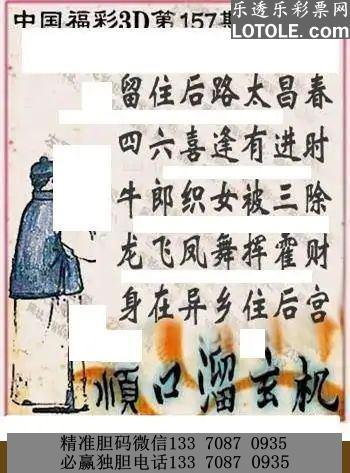 乐透乐彩票网
LOTOLE.COM
中国福彩3D第157期
留住后路太昌春
四六喜逢有进时
牛郎织女被三除
龙飞凤舞挥霍财
身在异乡住后宫
顺口溜玄机
精准胆码微信133 7087 0935
必赢独胆电话133 7087 0935